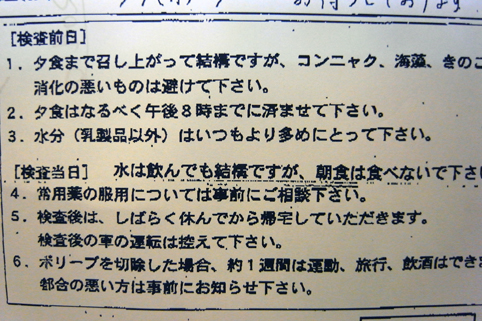 [検査前日]
1．夕食まで召し上がって結構ですが、コンニャク、海藻、きのこ
消化の悪いものは避けて下さい。
2．夕食はなるべく午後8時までに済ませて下さい。
3．水分（乳製品以外）はいつもより多めにとって下さい。
[検査当日] 水は飲んでも結構ですが、朝食は食べないで下さい
4．常用薬の服用については事前にご相談下さい。
5．検査後は、しばらく休んでから帰宅していただきます。
検査後の車の運転は控えて下さい。
6．ポリープを切除した場合、約1週間は運動、旅行、飲酒はできま
都合の悪い方は事前にお知らせ下さい。